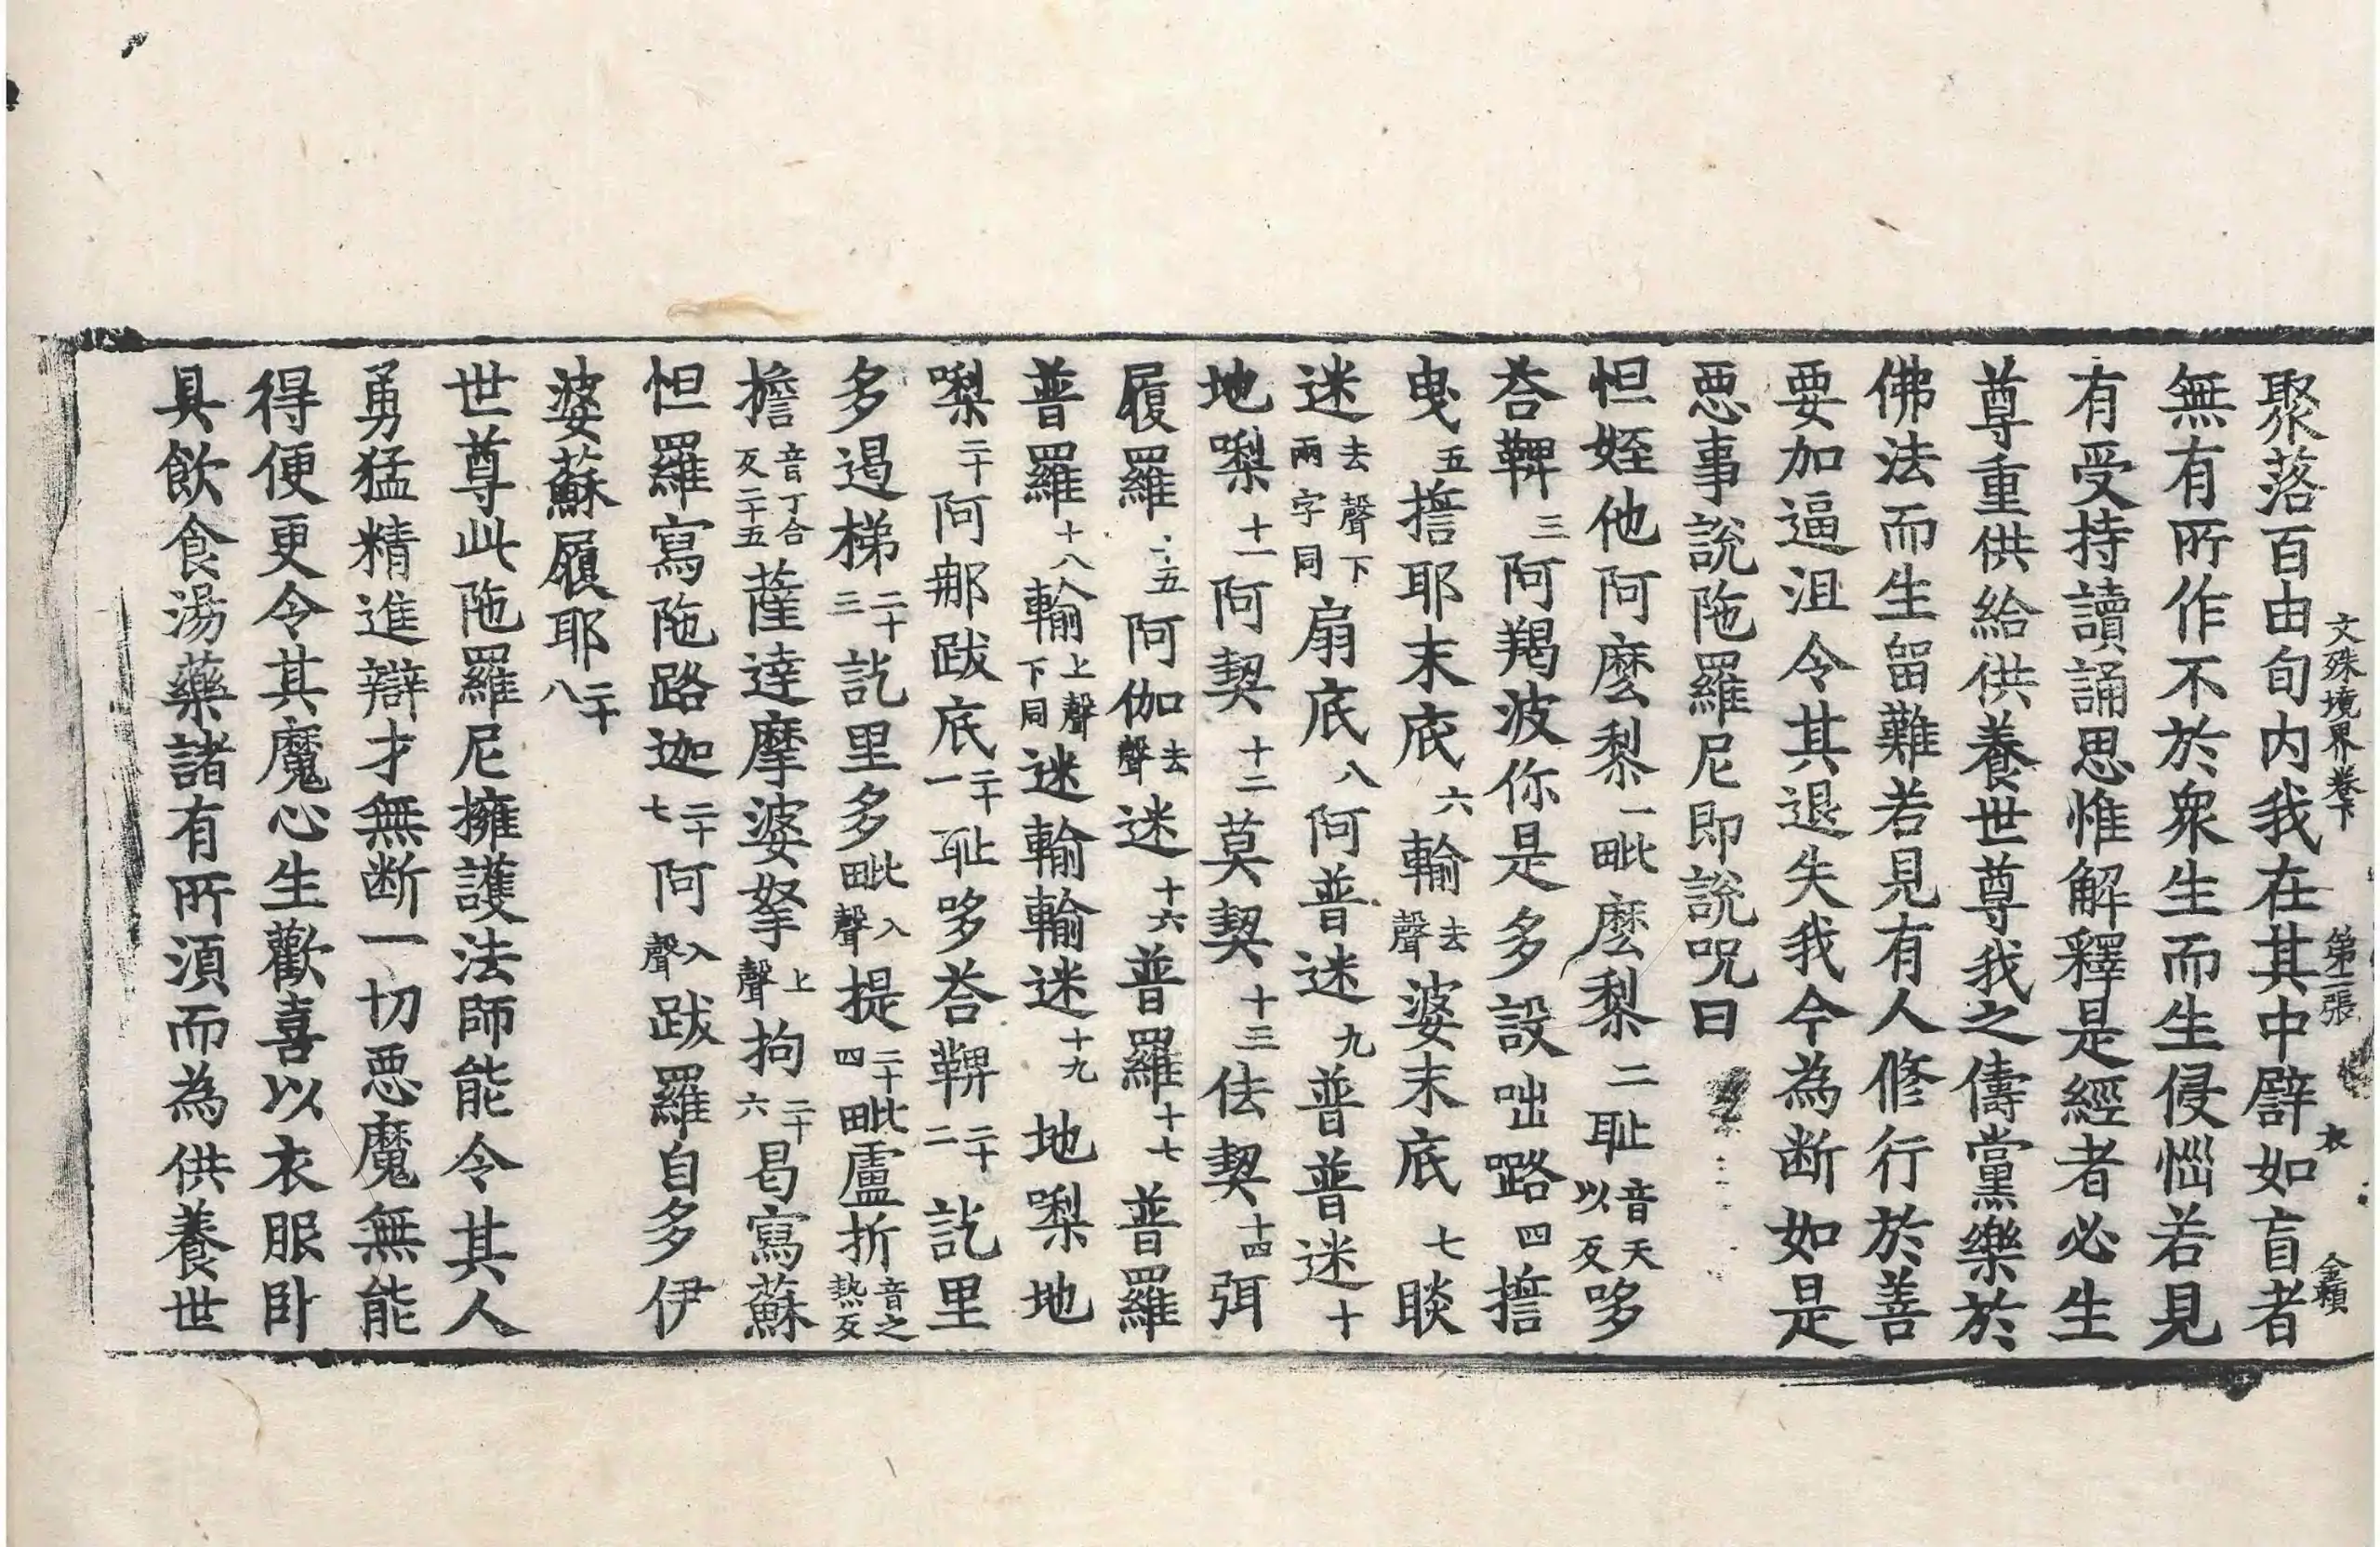 文殊境界卷下 第十二張 衣 金積
聚落百由旬内我在其中譬如盲者
無有所作不於衆生而生侵惱若見
有受持讀誦思惟解釋是經者必生
尊重供給供養世尊我之儔黨樂於
佛法而生留難若見有人修行於善
要加逼沮令其退失我今為断如是
惡事說陁羅尼即說呪曰
怛姪他阿麼黎一毗麼黎二耻音天以反哆
荅鞞三阿羯波你是多設咄路四誓
曳五誓耶末底六輸去聲婆末底七睒
迷去聲下兩字同扇底八阿普迷九普普迷十
地㗚十一阿契十二莫契十三佉契十四弭
履羅五阿伽去聲迷十六普羅十七普羅
普羅十八輸上聲下同迷輸輸迷十九地㗚地
㗚二十阿那跋底二十一耻哆荅鞞二十二訖里
多遏梯二十三訖里多毗入聲提二十四毗盧折音之熱反
擔音丁合反二十五薩達摩婆拏上聲拘二十六曷寫蘇
怛羅寫陁路迦二十七阿入聲跋羅自多伊
婆蘇履耶二十八
世尊此陁羅尼擁護法師能令其人
勇猛精進辯才無断一切惡魔無能
得便更令其魔心生歡喜以衣服卧
具飲食湯藥諸有所湏而為供養世